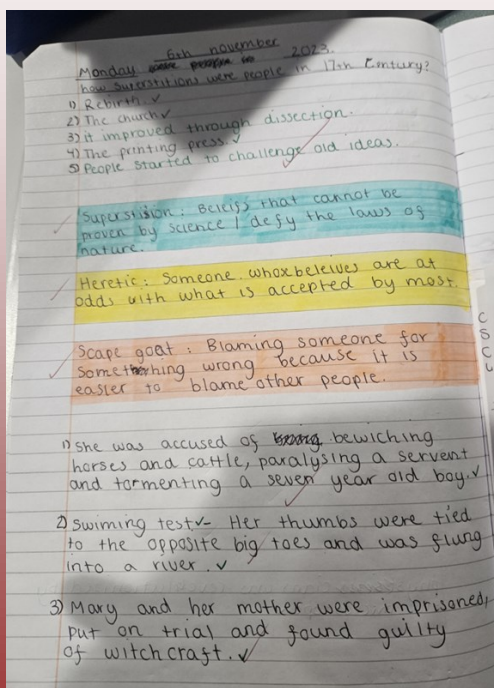 6th november
Monday 2023.
how superstitions were people in 17th Century?
1) Rebirth.
2) The church
3) it improved through dissection.
4) The printing press.
5) People started to challenge old ideas.
Superstision: Beleifs that cannot be
proven by science / defy the laws of
nature.
Heretic: Someone whox beleives are at
odds with what is accepted by most.
Scape goat: Blaming someone for
something wrong because it is
easier to blame other people.
1) She was accused of bewiching
horses and cattle, paralysing a servent
and tormenting a seven year old boy.
2) Swiming test - Her thumbs were tied
to the opposite big toes and was flung
into a river.
3) Mary and her mother were imprisoned,
put on trial and found guilty
of witchcraft.
C
S
C